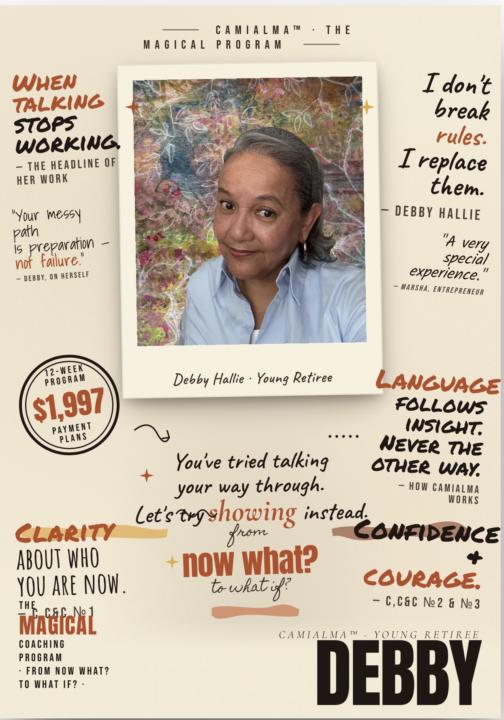 CAMIALMA™ · THE
MAGICAL PROGRAM
WHEN
TALKING
STOPS
WORKING.
— THE HEADLINE OF
HER WORK
"Your messy
path
is preparation —
not failure."
— DEBBY, ON HERSELF
I don't
break
rules.
I replace
them.
— DEBBY HALLIE
"A very
special
experience."
— MARSHA, ENTREPRENEUR
Debby Hallie · Young Retiree
12-WEEK
PROGRAM
$1,997
PAYMENT
PLANS
LANGUAGE
FOLLOWS
INSIGHT.
NEVER THE
OTHER WAY.
— HOW CAMIALMA
WORKS
You've tried talking
your way through.
Let's try showing instead.
from
now what?
to what if?
CLARITY
ABOUT WHO
YOU ARE NOW.
— C,C&C №1
CONFIDENCE
+
COURAGE.
— C,C&C №2 & №3
THE
MAGICAL
COACHING
PROGRAM
· FROM NOW WHAT?
TO WHAT IF? ·
CAMIALMA™ · YOUNG RETIREE
DEBBY